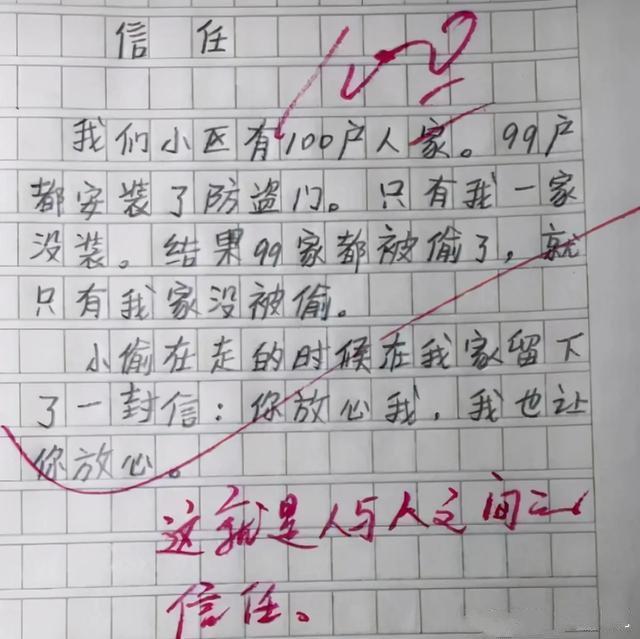 信任
100
我们小区有100户人家。99户
都安装了防盗门。只有我一家
没装。结果99家都被偷了，就
只有我家没被偷。
小偷在走的时候在我家留下
了一封信：你放心我，我也让
你放心。
这就是人与人之间之
信任。